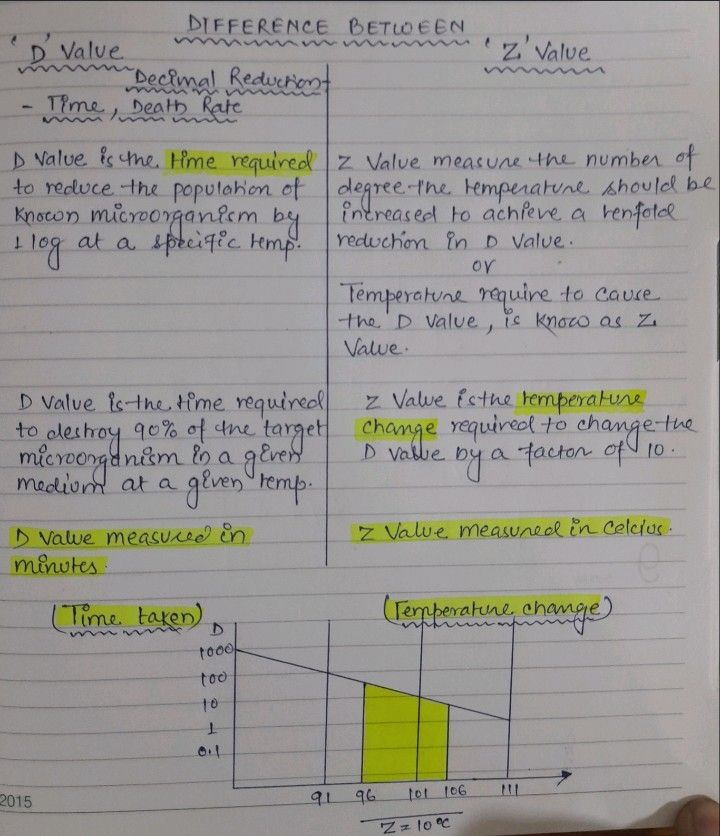 DIFFERENCE BETWEEN
'D' Value
Decimal Reduction
- Time, Death Rate
D Value is the time required
to reduce the population of
Known microorganism by
1 log at a specific temp.
D Value is the time required
to destroy 90% of the target
microorganism in a given
medium at a given temp.
D Value measured in
minutes.
'Z' Value
Z Value measure the number of
degree the temperature should be
increased to achieve a tenfold
reduction in D Value.
or
Temperature require to cause
the D Value, is Known as Z
Value.
Z Value is the temperature
change required to change the
D Value by a factor of 10.
Z Value measured in Celcius.
(Time taken)
(Temperature change)
D
1000
100
10
1
0.1
91 96 101 106 111
Z = 10°C
2015